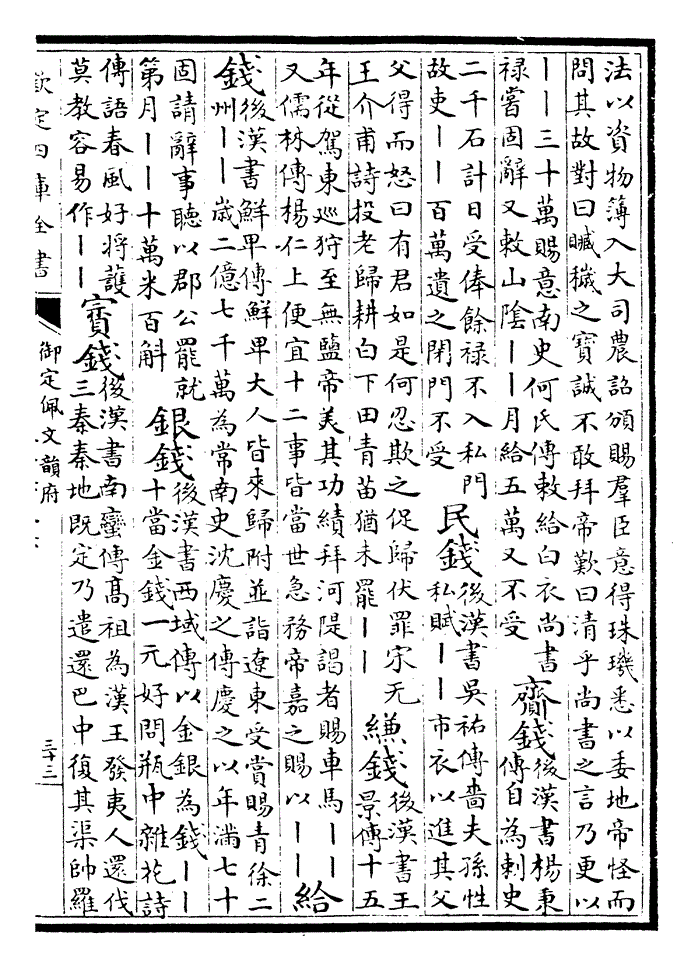 法以資物簿入大司農詔頒賜羣臣意得珠璣悉以委地帝怪而
問其故對曰贓穢之寶誠不敢拜帝歎曰清乎尚書之言乃更以
丨丨三十萬賜意南史何氏傳敕給白衣尚書
祿嘗固辭又敕山陰丨丨月給五萬又不受
齎錢
後漢書楊秉
傳自為刺史
二千石計日受俸餘禄不入私門
故吏丨丨百萬遺之閉門不受
民錢
後漢書吳祐傳嗇夫孫性
私賦丨丨市衣以進其父
父得而怒曰有君如是何忍欺之促歸伏罪宋无
王介甫詩投老歸耕白下田青苗猶未罷丨丨
縑錢
後漢書王
景傳十五
年從駕東巡狩至無鹽帝美其功績拜河隄謁者賜車馬丨丨
又儒林傳楊仁上便宜十二事皆當世急務帝嘉之賜以丨丨
給
錢
後漢書鮮卑傳鮮卑大人皆來歸附並詣遼東受賞賜青徐二
州丨丨歲二億七千萬為常南史沈慶之傳慶之以年滿七十
固請辭事聽以郡公罷就
第月丨丨十萬米百斛
銀錢
後漢書西域傳以金銀為錢丨丨
十當金錢一元好問瓶中雜花詩
傳語春風好將護
莫教容易作丨丨
賨錢
後漢書南蠻傳髙祖為漢王發夷人還伐
三秦秦地既定乃遣還巴中復其渠帥羅
欽定四庫全書
御定佩文韻府
三十三